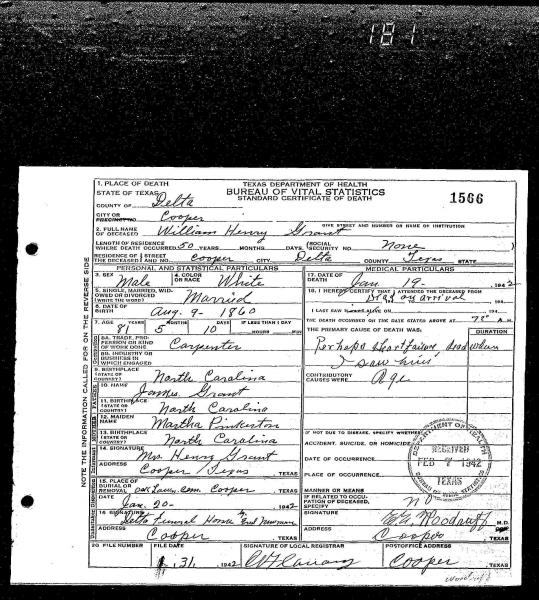 181
1. PLACE OF DEATH
STATE OF TEXAS
COUNTY OF Delta
TEXAS DEPARTMENT OF HEALTH
BUREAU OF VITAL STATISTICS
STANDARD CERTIFICATE OF DEATH
1566
CITY OR PRECINCT NO. Cooper
GIVE STREET AND NUMBER OR NAME OF INSTITUTION
2. FULL NAME OF DECEASED William Henry Grant
LENGTH OF RESIDENCE WHERE DEATH OCCURRED 50 YEARS MONTHS DAYS (SOCIAL SECURITY NO None )
RESIDENCE OF THE DECEASED STREET AND NO. Cooper CITY, Delta COUNTY Texas STATE
PERSONAL AND STATISTICAL PARTICULARS
MEDICAL PARTICULARS
3. SEX Male
4. COLOR OR RACE White
5. SINGLE, MARRIED, WIDOWED OR DIVORCED (WRITE THE WORD) Married
6. DATE OF BIRTH Aug. 9 - 1860
7. AGE 81 YEARS 5 MONTHS 10 DAYS IF LESS THAN 1 DAY HOURS MIN
8A. TRADE, PROFESSION OR KIND OF WORK DONE Carpenter
8B. INDUSTRY OR BUSINESS IN WHICH ENGAGED
9. BIRTHPLACE (STATE OR COUNTRY) North Carolina
10. NAME James Grant
11. BIRTHPLACE (STATE OR COUNTRY) North Carolina
12. MAIDEN NAME Martha Pinkerton
13. BIRTHPLACE (STATE OR COUNTRY) North Carolina
14. SIGNATURE Mrs Henry Grant
ADDRESS Cooper Texas , TEXAS
15. PLACE OF BURIAL OR REMOVAL Oak Lawn Cem. Cooper , TEXAS
DATE Jan. 20 - 1942
16. SIGNATURE Delta Funeral Home
ADDRESS Cooper , TEXAS
17. DATE OF DEATH Jan. 19 - 1942
18. I HEREBY CERTIFY THAT I ATTENDED THE DECEASED FROM
Dead on arrival
I LAST SAW ALIVE ON
THE DEATH OCCURRED ON THE DATE STATED ABOVE AT M.
THE PRIMARY CAUSE OF DEATH WAS:
DURATION
Perhaps heart failure, dead when
I saw him
CONTRIBUTORY CAUSES WERE: Age
IF NOT DUE TO DISEASE, SPECIFY WHETHER:
ACCIDENT, SUICIDE, OR HOMICIDE
DATE OF OCCURRENCE
PLACE OF OCCURRENCE
MANNER OR MEANS
IF RELATED TO OCCUPATION OF DECEASED, SPECIFY No
SIGNATURE Woodruff M.D.
ADDRESS Cooper , TEXAS
DEPARTMENT OF HEALTH
RECEIVED
FEB 7 1942
TEXAS
BUREAU OF VITAL STATISTICS
20 FILE NUMBER
FILE DATE 1. 31. 1942
SIGNATURE OF LOCAL REGISTRAR
POSTOFFICE ADDRESS Cooper , TEXAS
Woodruff
NOTE THE INFORMATION CALLED FOR ON THE REVERSE SIDE